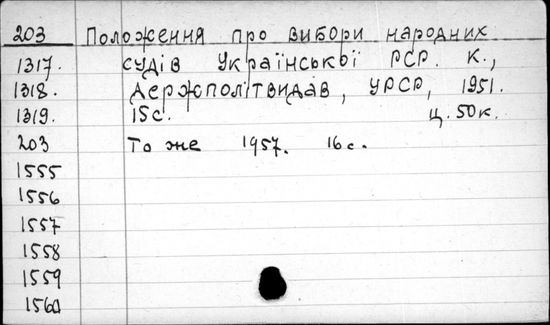 203 Положення про вибори народних
1317. судів Української РСР. К.,
1318. Держполітвидав, УРСР, 1951.
1319. 15с. ц. 50к.
203 То же 1957. 16с.
1555
1556
1557
1558
1559
1560